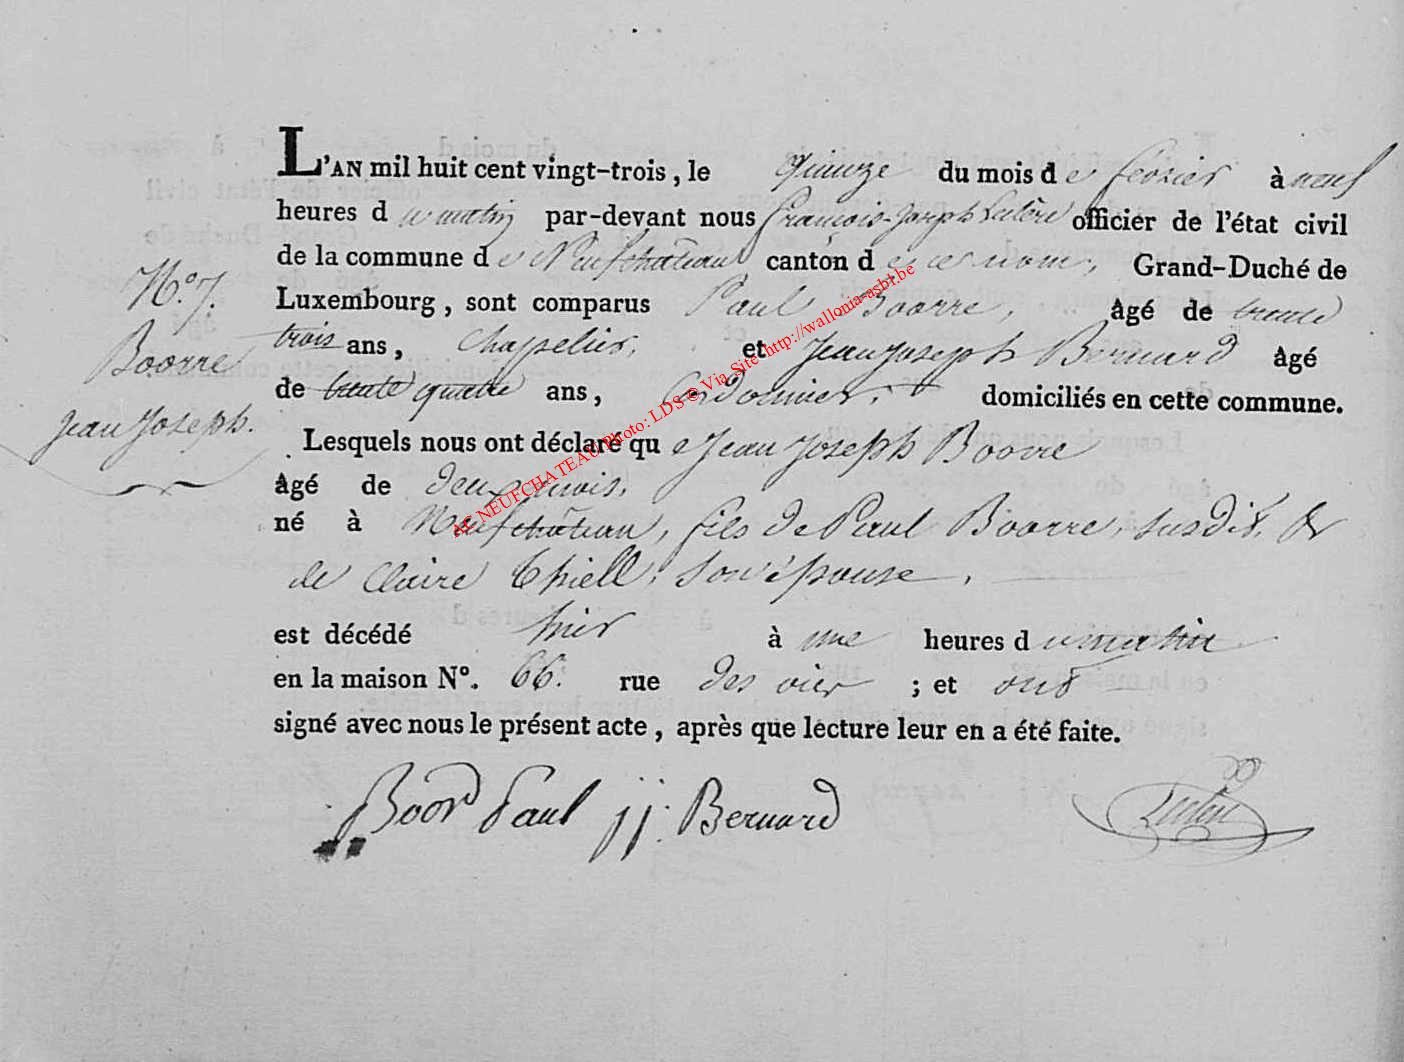 L'AN mil huit cent vingt-trois, le quinze du mois de février à neuf
heures du matin par-devant nous François-Joseph officier de l'état civil
de la commune de Neufchâteau canton de ce nom, Grand-Duché de
Luxembourg, sont comparus Paul Boorre, âgé de trente
trois ans, Chapelier, et Jean Joseph Bernard âgé
de trente quatre ans, Cordonnier, domiciliés en cette commune.
Lesquels nous ont déclaré que Jean Joseph Boorre
âgé de deux mois,
né à Neufchâteau, fils de Paul Boorre, susdit, &
de Claire Thiell, son épouse,
est décédé hier à une heures du matin
en la maison N°. 66. rue des ; et ont
signé avec nous le présent acte, après que lecture leur en a été faite.
N°. 7.
Boorre
Jean Joseph.
Boor Paul jj. Bernard
AC NEUFCHATEAU Photo: LDS © Via Site http://wallonia-asbl.be